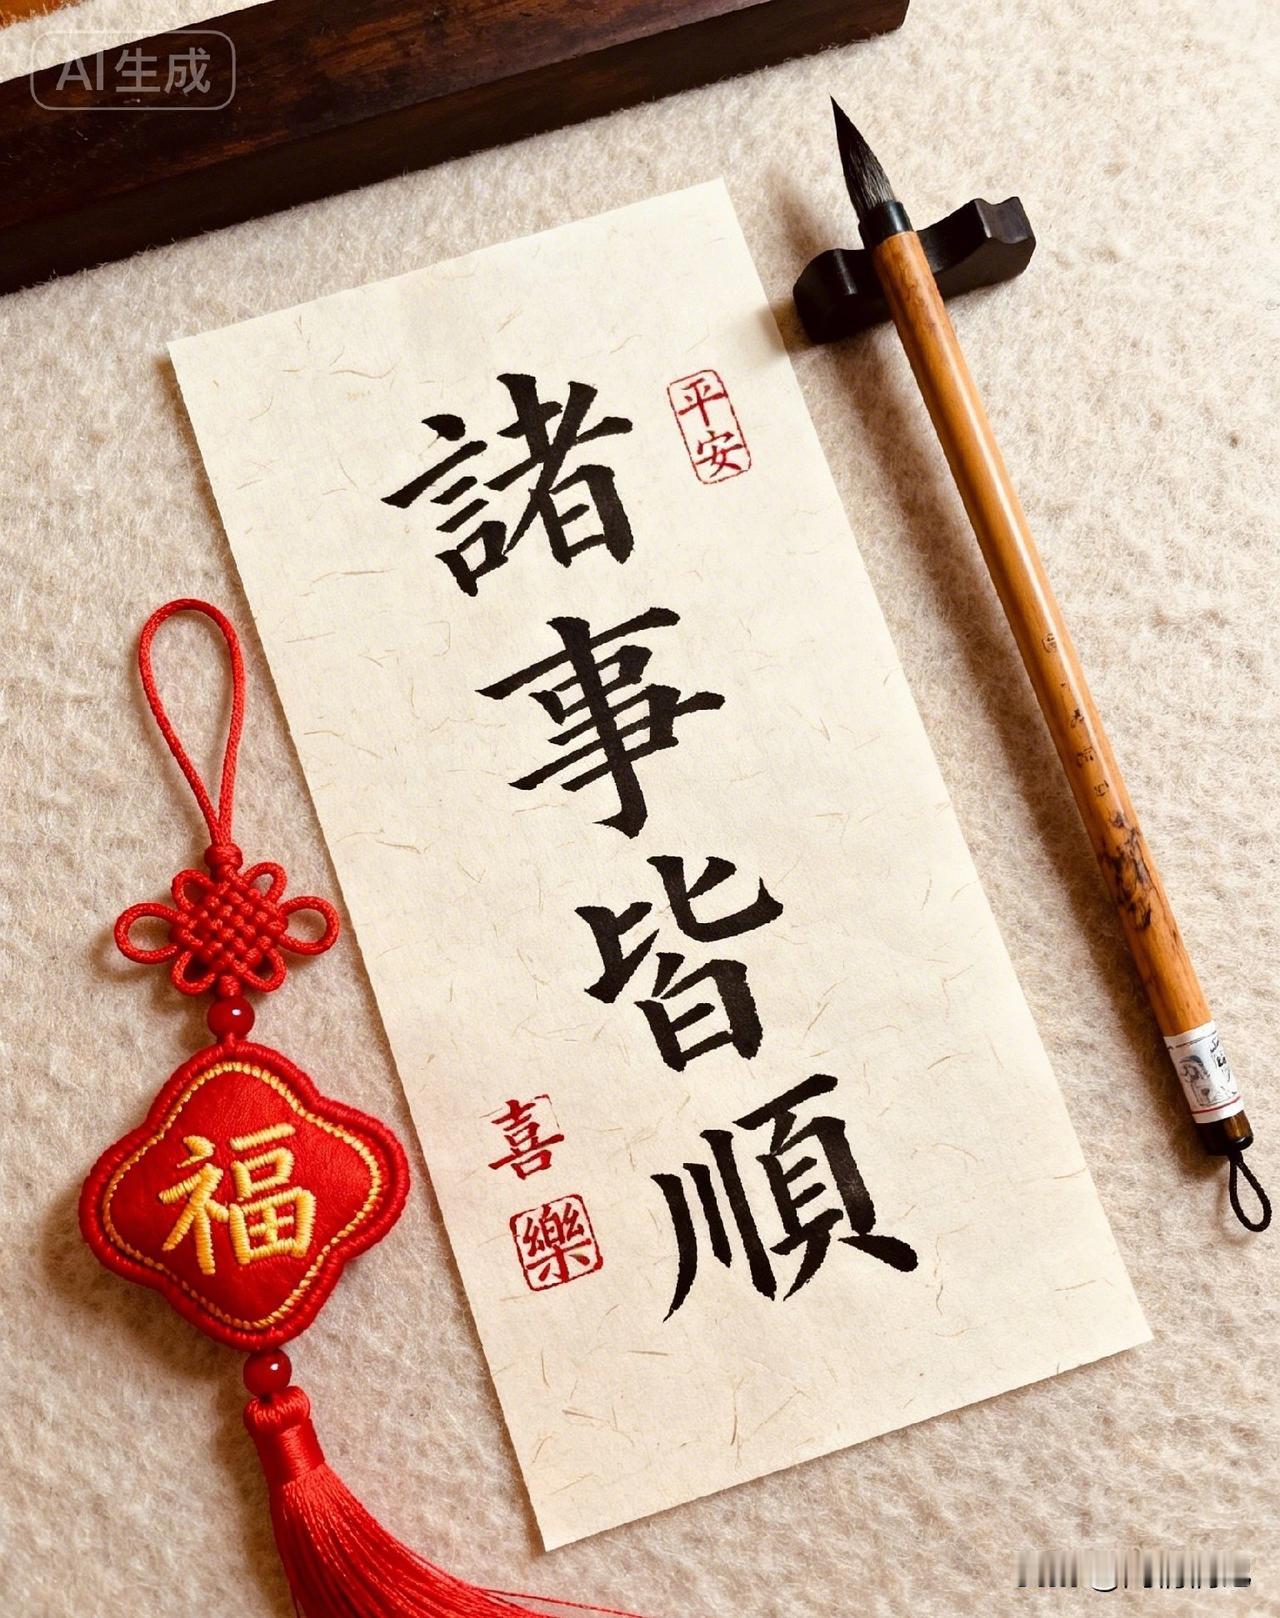 AI生成
平安
諸事皆順
喜
樂
福